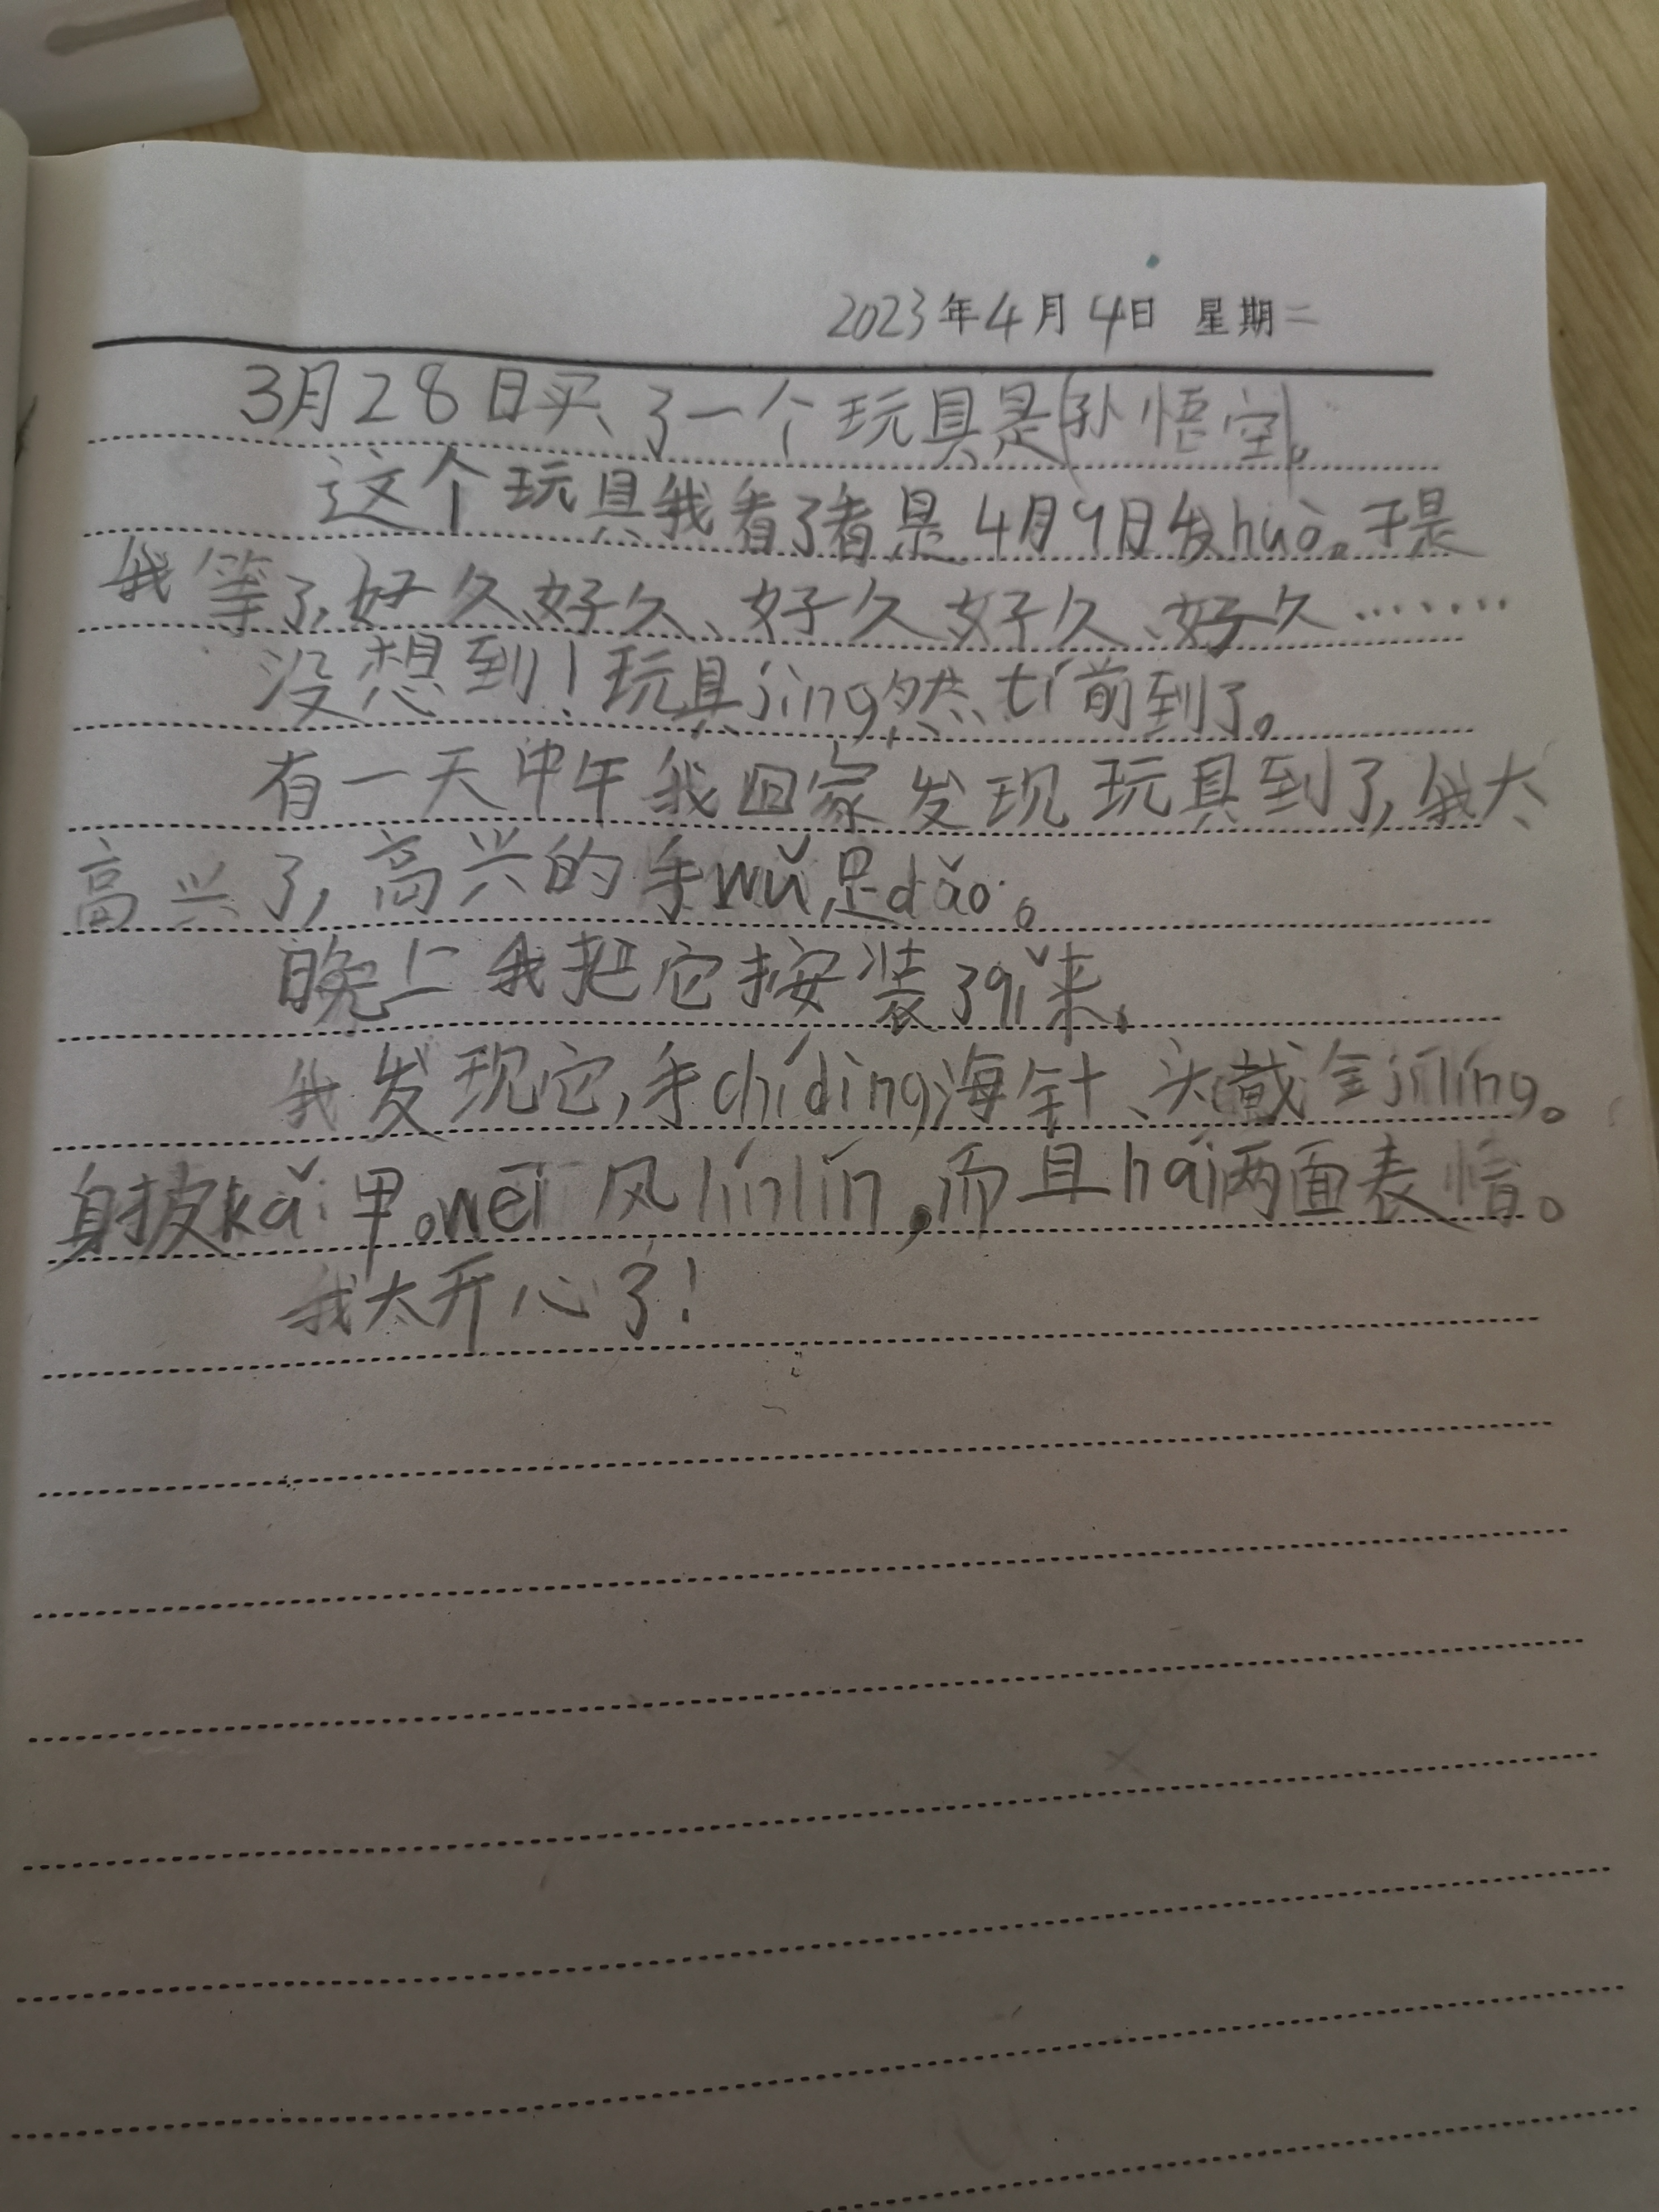 2023年4月4日 星期二
3月28日买了一个玩具是(孙悟空)。
这个玩具我看了看是4月9日发huò。于是
我等了,好久、好久、好久、好久、好久………
没想到!玩具jing然tí前到了。
有一天中午我回家发现玩具到了,我太
高兴了,高兴的手wǔ足dǎo。
晚上我把它按装了qǐ来。
我发现它,手chídìng海针、头戴金jīlíng。
身披kǎi甲。wēi风línlín,而且hái两面表情。
我太开心了!